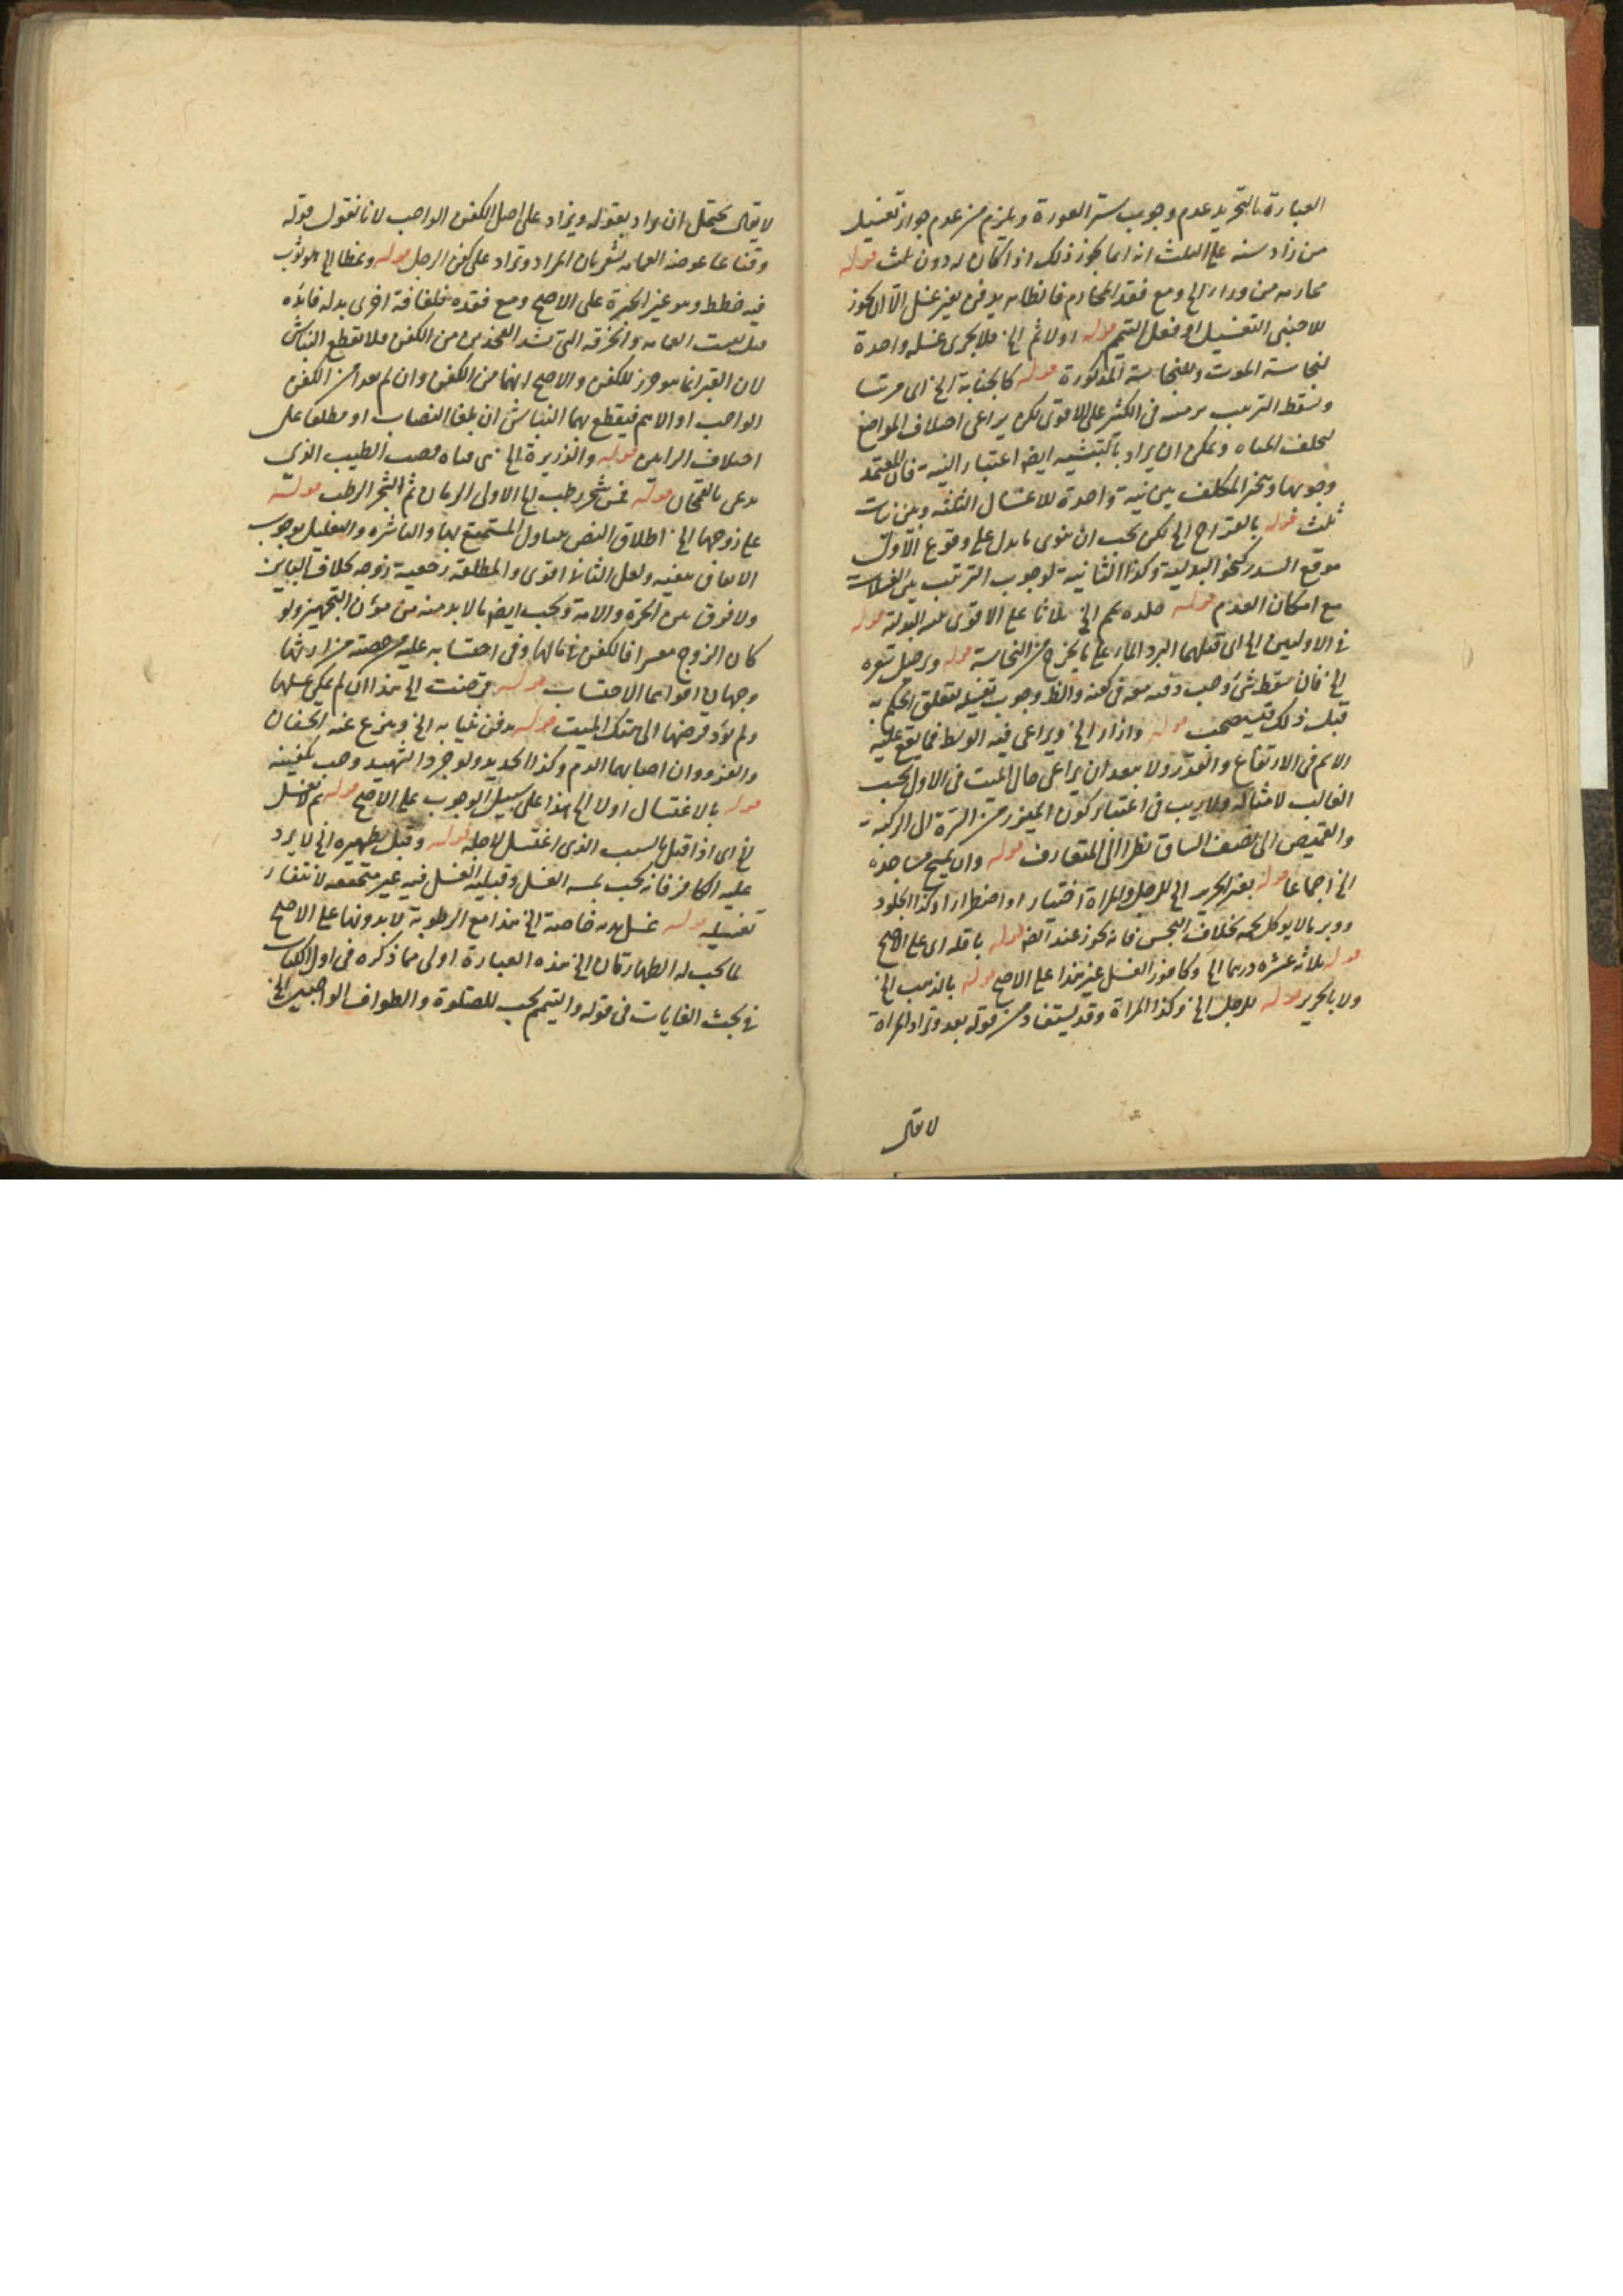 العبارة بالتجريد عدم وجوب ستر العورة ويلزم من عدم جواز تغسيل
من زاد سنه على الثلث انه انما يجوز ذلك اذا كان له دون ثلث قوله
محارمه من وراء الخ ومع فقد المحارم فالظاهر يدفن بغير غسل الا ان يجوز
للاجنبى التغسيل او فعل التيمم قوله اولا ثم الخ فلا يجزى غسله واحدة
لنجاسة الموت وللنجاسة المذكورة قوله كالجنابة الخ اى مرتبا
ويسقط الترتيب برمسه فى الكثير على الاقوى لكن يراعى اختلاف المواضع
لتخلف المياه ويمكن ان يراد بالتشبيه ايضا اعتبار النية فان المعتمد
وجوبها وتخير المكلف بين نية واحدة للاغسال الثلثة وبين نيات
ثلث قوله بالقراح الخ لكن يجب ان ينوى ما يدل على وقوع الاول
موقع السدر كنحو البدلية وكذا الثانية لوجوب الترتيب بين الغسلات
مع امكان العدم قوله جلده يمم الخ ثلاثا على الاقوى قوله
فى الاوليين الخ اى قبلهما البرد الماء على ما يخرج من النجاسة قوله وترجيل شعره
الخ فان سقط شئ وجب دفنه معه فى كفنه والظ وجوب تغسيله لتعلق الحكم به
قبل ذلك فيستصحب قوله وازار الخ ويراعى فيه الوسط فما يقع عليه
الاسم فى الارتفاع والقدر ولا يبعد ان يراعى حال الميت فى الاول بحسب
الغالب لامثاله ولا ريب فى اعتبار كون الميزر من السرة الى الركبة
والقميص الى نصف الساق نظرا الى المتعارف قوله وان يمسح مساجده
الخ اجماعا قوله بغير الحرير الخ للرجل وللمراة اختيارا او اضطرارا وكذا الجلود
ووبر ما لا يوكل لحمه بخلاف النجس فانه يجوز عند الضر قوله باقله اى على الاصح
قوله ثلاثة عشر درهما الخ وكافور الغسل غير هذا على الاصح قوله بالذهب الخ
ولا بالحرير قوله للرجل الخ وكذا المراة وقد يستفاد من قوله بعد وتزاد المراة
لا يقال
لا يقال يحتمل ان يراد بقوله ويزاد على اصل الكفن الواجب لانا نقول قوله
وقناعا عوض العمامة يشعر بان المراد وتزاد على كفن الرجل قوله ونمطا الخ هو ثوب
فيه خطط وهو غير الحبرة على الاصح ومع فقده فلفافة اخرى بدله فائدة
قيل ليست العمامة والخرقة التى تشد الفخذين من الكفن فلا تقطع النباش
لان القبر انما هو حرز للكفن والاصح انهما من الكفن وان لم يعدا من الكفن
الواجب او الاهم فيقطع بهما النباش ان بلغا النصاب او مطلقا على
اختلاف الرايين قوله والذريرة الخ هى فتاة قصب الطيب الذى
يدعى بالقمحان قوله فمن شجر رطب الخ الاولى الرمان ثم الشجر الرطب قوله
على زوجها الخ اطلاق النص يتناول المستمتع بها والناشزة والتعليل بوجوب
الانفاق ينفيه ولعل الثانى اقوى والمطلقة رجعية زوجة بخلاف البائن
ولا فرق بين الحرة والامة ويجب ايضا ما لا بد منه من مؤن التجهيز ولو
كان الزوج معسرا فالكفن فى مالها وفى احتسابه عليه من حصته من ارثها
وجهان اقواهما الاحتساب قوله قرضت الخ هذا ان لم يمكن غسلها
ولم يؤد قرضها الى هتك الميت قوله يدفن بثيابه الخ وينزع عنه الخفان
والفرو وان اصابهما الدم وكذا الحديد ولو جرد الشهيد وجب تكفينه
قوله بالاغتسال اولا الخ هذا على سبيل الوجوب على الاصح قوله ثم لا يغسل
الخ اى اذا قتل بالسبب الذى اغتسل لاجله قوله وقبل تطهيره الخ لا يرد
عليه الكافر فانه يجب بمسه الغسل وقبلية الغسل فيه غير متحققه لانتفاء
تغسيله قوله غسل يده خاصة الخ هذا مع الرطوبة لا بدونها على الاصح
لما يجب له الطهارتان الخ هذه العبارة اولى مما ذكره فى اول الكتاب
فى بحث الغايات فى قوله والتيمم يجب للصلوة والطواف الواجبين الخ